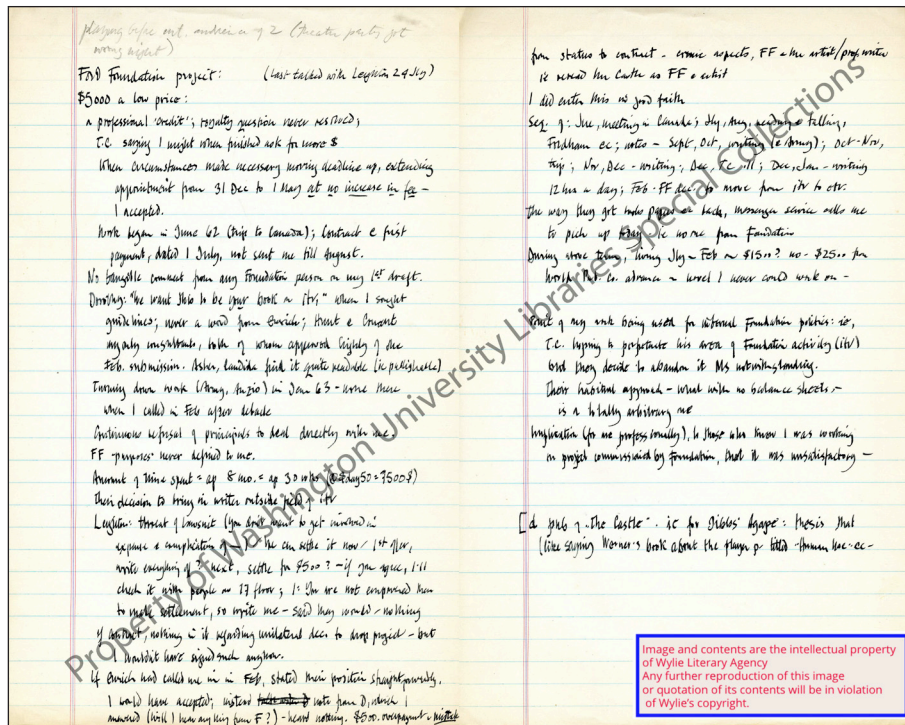 playing before
wrong night)
Ford Foundation project: (last talked with Leighton 24 Jly)
$5000 a low price:
a professional 'credit'; royalty question never resolved;
T.C. saying I might when finished ask for more $
When circumstances make necessary moving deadline up, extending
appointment from 31 Dec to 1 May at no increase in fee —
I accepted.
Work began in June 62 (trip to Canada); Contract & first
payment, dated 1 July, not sent me till August.
No tangible comment from any Foundation person on my 1st draft.
"We want this to be your book on itv;" when I sought
guidelines; never a word from Enrich; Hunt &
my only consultants, both of whom approved highly of the
Feb. submission. Asher, Candida find it quite readable (ie publishable)
Turning down work (Army, Anzio) in Jan 63 — none there
when I called in Feb after debacle
Continuous refusal of principals to deal directly with me.
FF purposes never defined to me.
Amount of time spent = ap 8 mo. = ap 30 wks
Their decision to bring in writer outside field of itv
Leighton: threat of lawsuit (you don't want to get involved in
expense & complications of) — We can settle it now / 1st offer,
write everything off; next, settle for $500? — if you agree, I'll
check it with people on 17 floor; I: You are not empowered then
to make settlement, so write me — said they would — nothing
of contract, nothing in it regarding unilateral decn to drop project — but
I wouldn't have signed such anyhow.
If Enrich had called me in in Feb, stated their position straightforwardly,
I would have accepted; instead note from D, which I
answered (Will I hear anything from F?) — heard nothing. $500. overpayment a mistake
from status to contract — comic aspects, FF & the artist/prof. writer
ie reread the Castle as FF & artist
I did enter this in good faith
Seq. of: Jne, meeting in Canada; Jly, Aug, reading & talking,
Fordham ec; notes — Sept, Oct, writing (& Army); Oct-Nov,
trip; Nov, Dec - writing; Dec, TC ill; Dec, Jan - writing
12 hrs a day; Feb - FF dec. to move from itv to etv.
The way they got under papers back, messenger service calls me
to pick up no word from Foundation
During above time, living Jly - Feb on $1500? no - $2500 from
World Pub. Co. advance on novel I never could work on —
Point of my work being used for internal Foundation politics: ie,
T.C. hoping to perpetuate his area of Foundation activity (itv)
but they decide to abandon it Ms notwithstanding.
Their habitual approach — what with no balance sheets —
is a totally arbitrary one
Implication (for me professionally), to those who knew I was working
on project commissioned by Foundation, that it was unsatisfactory —
[ pub of "The Castle" - ie for Gibbs' Agape: thesis that
(like saying Werner's book about the player p titled
Property of Washington University Libraries Special Collections
Image and contents are the intellectual property
of Wylie Literary Agency
Any further reproduction of this image
or quotation of its contents will be in violation
of Wylie's copyright.